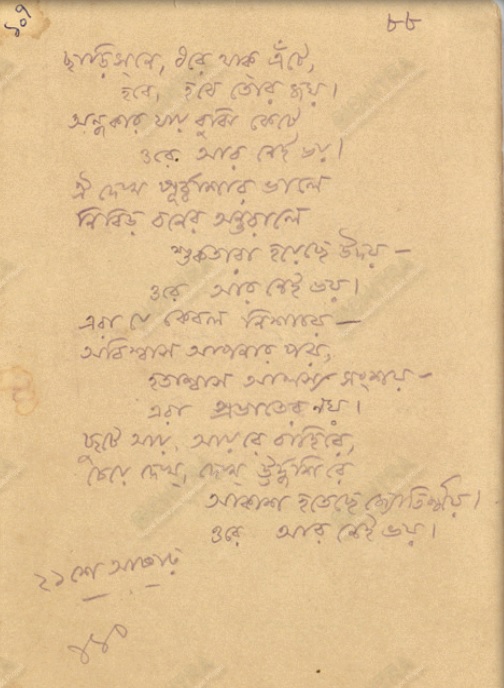 ১০৭
৮৮
ছাড়িসনে, ধরে থাক এঁটে,
হবে, হবে তোর জয়।
অন্ধকার যায় বুঝি কেটে
ওরে আর নেই ভয়।
ঐ দেখ্ পূর্ব্বাশার ভালে
নিবিড় বনের অন্তরালে
শুকতারা হয়েছে উদয় —
ওরে আর নেই ভয়।
এরা যে কেবল নিশাচর —
অবিশ্বাস আপনার পর,
হতাশ্বাস আলস্য সংশয় —
এরা প্রভাতের নয়।
ছুটে আয়, আয়রে বাহিরে,
চেয়ে দেখ্, দেখ্ ঊর্দ্ধশিরে
আকাশ হতেছে জ্যোতির্ম্ময়।
ওরে আর নেই ভয়।
২১শে আষাঢ়